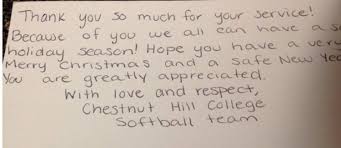 Thank you so much for your service!
Because of you we all can have a
holiday season! Hope you have a very
Merry Christmas and a safe New
You are greatly appreciated.
With love and respect,
Chestnut Hill College
Softball team